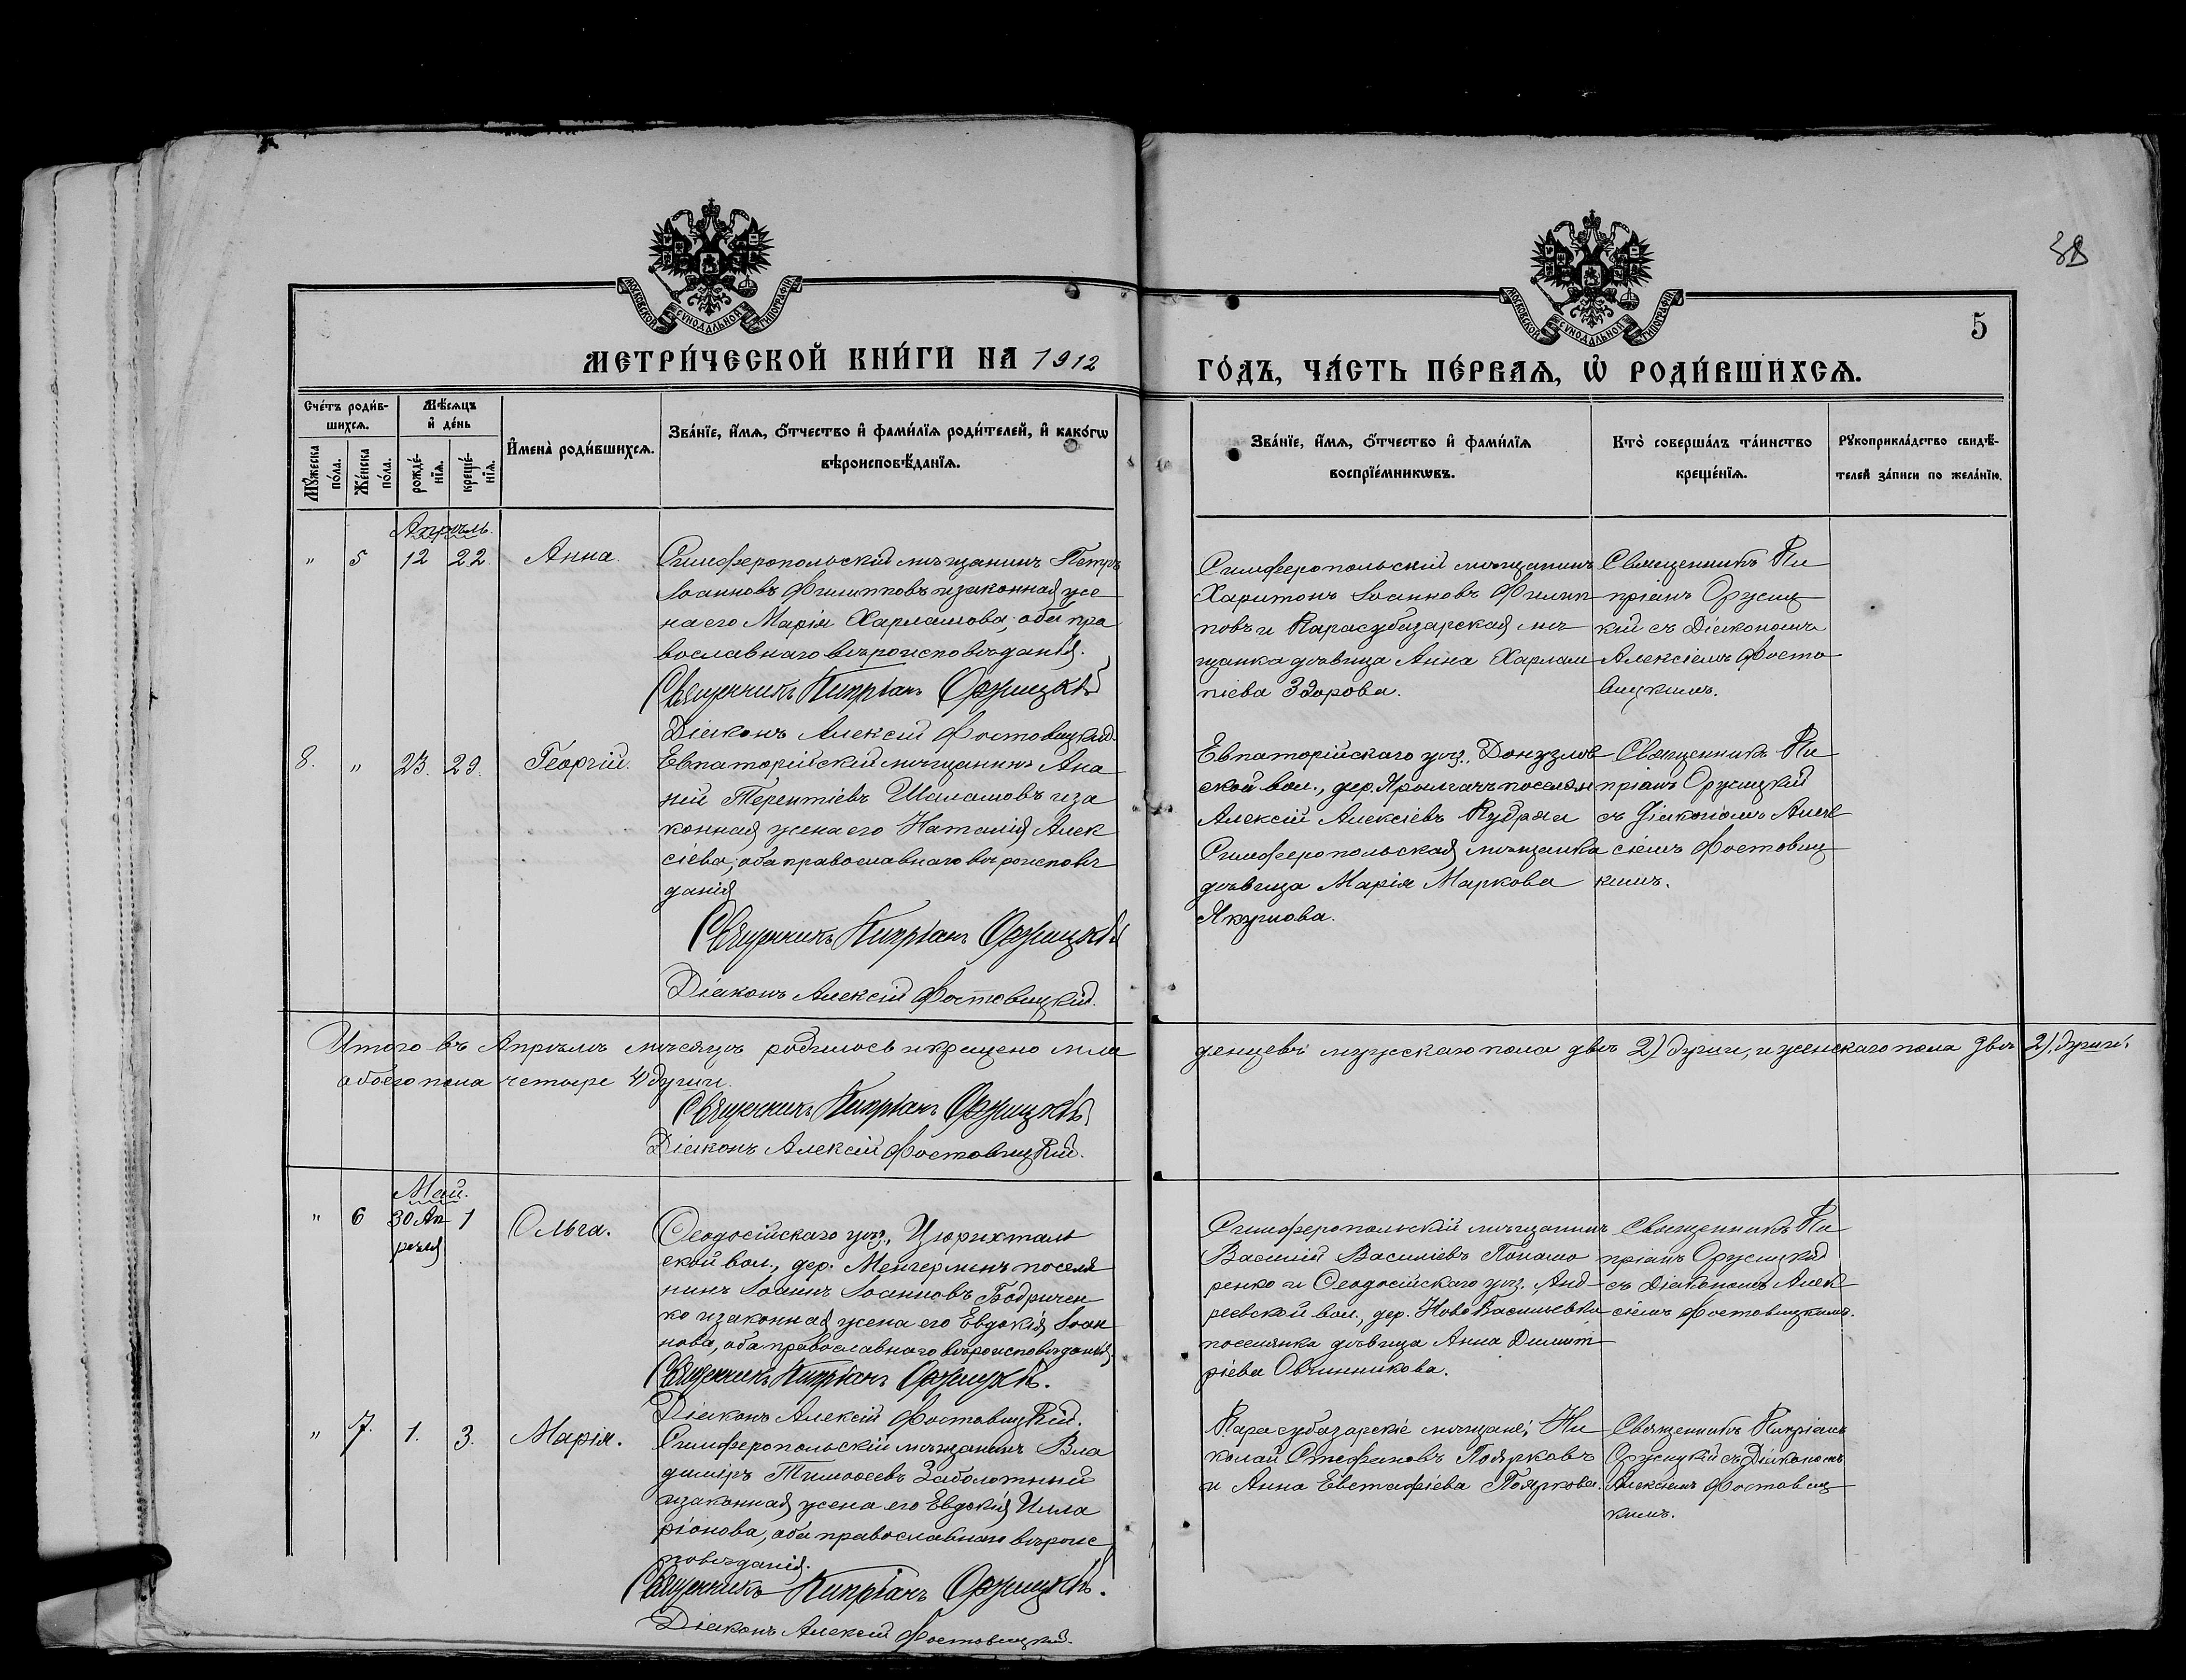 38
МОСКОВСКОЙ СѴНОДАЛЬНОЙ ТИПОГРАФІИ
МОСКОВСКОЙ СѴНОДАЛЬНОЙ ТИПОГРАФІИ
5
МЕТРИ́ЧЕСКОЙ КНИ́ГИ НА 1912
ГО́ДЪ, ЧА́СТЬ ПЕ́РВАѦ, Ѽ РОДИ́ВШИХСѦ.
Сче́тъ роди́в-
шихсѧ.
Мꙋ́жеска по́ла.
Же́нска по́ла.
Мѣ́сѧцъ
и҆ де́нь
рожде́-
нїѧ.
креще́-
нїѧ.
И҆мена̀ роди́вшихсѧ.
Зва́нїе, и҆́мѧ, ѻ҆́тчество и҆ фами́лїѧ роди́телей, и҆ како́гѡ
вѣроисповѣ́данїѧ.
Зва́нїе, и҆́мѧ, ѻ҆́тчество и҆ фами́лїѧ
воспрїе́мникѡвъ.
Кто̀ соверша́лъ та́инство
креще́нїѧ.
Рꙋкоприкла́дство свидѣ́-
телей за́писи по жела́нїю.
Апрѣль.
" 5 12 22. Анна.
Симферопольскій мѣщанинъ Петръ
Іоанновъ Филипповъ и законная же
на его Марія Харлампова; оба пра
вославнаго вѣроисповѣданія.
Священникъ Кипріанъ Оржицкій
Діаконъ Алексій Фостовицкій.
Симферопольскій мѣщанинъ
Харитонъ Іоанновъ Филип
повъ и Карасубазарская мѣ
щанка дѣвица Анна Харлам
піева Здорова.
Священникъ Ки
пріанъ Оржиц
кій съ Діакономъ
Алексіемъ Фосто
вицкимъ.
8. " 23. 29. Георгій.
Евпаторійскій мѣщанинъ Ана
ній Терентіевъ Шаламовъ и за
конная жена его Наталія Алек
сіева; оба православнаго вѣроисповѣ
данія
Священникъ Кипріанъ Оржицкій
Діаконъ Алексій Фостовицкій.
Евпаторійскаго уѣз., Донузлав
ской вол., дер. Ярылгачъ поселян
Алексій Алексіевъ Кудря и
Симферопольская мѣщанка
дѣвица Марія Маркова
Якунова.
Священникъ Ки
пріанъ Оржицкій
съ Діакономъ Алек
сіемъ Фостовиц
кимъ.
Итого въ Апрѣлѣ мѣсяцѣ родилось и крещено мла
денцевъ мужскаго пола двѣ 2) души, и женскаго пола двѣ 2) души,
обоего пола четыре 4) души.
Священникъ Кипріанъ Оржицкій
Діаконъ Алексій Фостовицкій.
Май.
" 6 30 Ап 1 Ольга.
рѣля
Ѳеодосійскаго уѣз., Цюрихталь
ской вол., дер. Менгерменъ поселя
нинъ Іоаннъ Іоанновъ Бодричен
ко и законная жена его Евдокія Іоан
нова, оба православнаго вѣроисповѣданія,
Священникъ Кипріанъ Оржицкій.
Діаконъ Алексій Фостовицкій.
Симферопольскій мѣщанинъ
Василій Василіевъ Понамо
ренко и Ѳеодосійскаго уѣз. Анд
реевской вол., дер. Ново Васильевки
поселянка дѣвица Анна Димит
ріева Овчинникова.
Священникъ Ки
пріанъ Оржицкій
съ Діакономъ Алек
сіемъ Фостовицкимъ.
" 7. 1. 3. Марія.
Симферопольскій мѣщанинъ Вла
диміръ Тимоѳеевъ Заболотный
и законная жена его Евдокія Илла
ріонова, оба православнаго вѣроис
повѣданія.
Священникъ Кипріанъ Оржицкій.
Діаконъ Алексій Фостовицкій.
Карасубазарскіе мѣщане; Ни
колай Стефановъ Поярковъ
и Анна Евстафіева Пояркова.
Священникъ Кипріанъ
Оржицкій съ Діакономъ
Алексіемъ Фостовиц
кимъ.